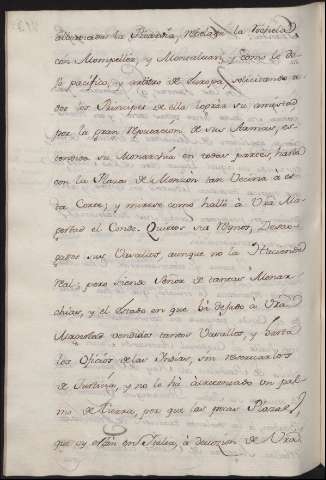 con Mompeller, y Montaluan, y como le de
jó pacifico, y arbitro de Europa, solicitando to
dos los Principes de ella lograr su amistad
por la gran reputacion de sus Armas, es
tendida su Monarchia en todas partes, hasta
con la Plaza de Monzon tan Vecina à es
ta Corte; y mirese como halló à Vra Ma
gestad el Conde. Quietos sus Reynos, Desca
sus Vasallos, aunque no la Hacienda
Real; pero siendo Señor de tantas Monar
chias, y el estado en que hà dejado à Vra
Magestad vendidos tantos Vasallos, y hasta
los Oficios de las Indias, sin reservar los
de Justicia, y no le hà adicionado un pal
mo de tierra, por que las pocas Plazas,
que oy están en Italia, à devocion de Vra